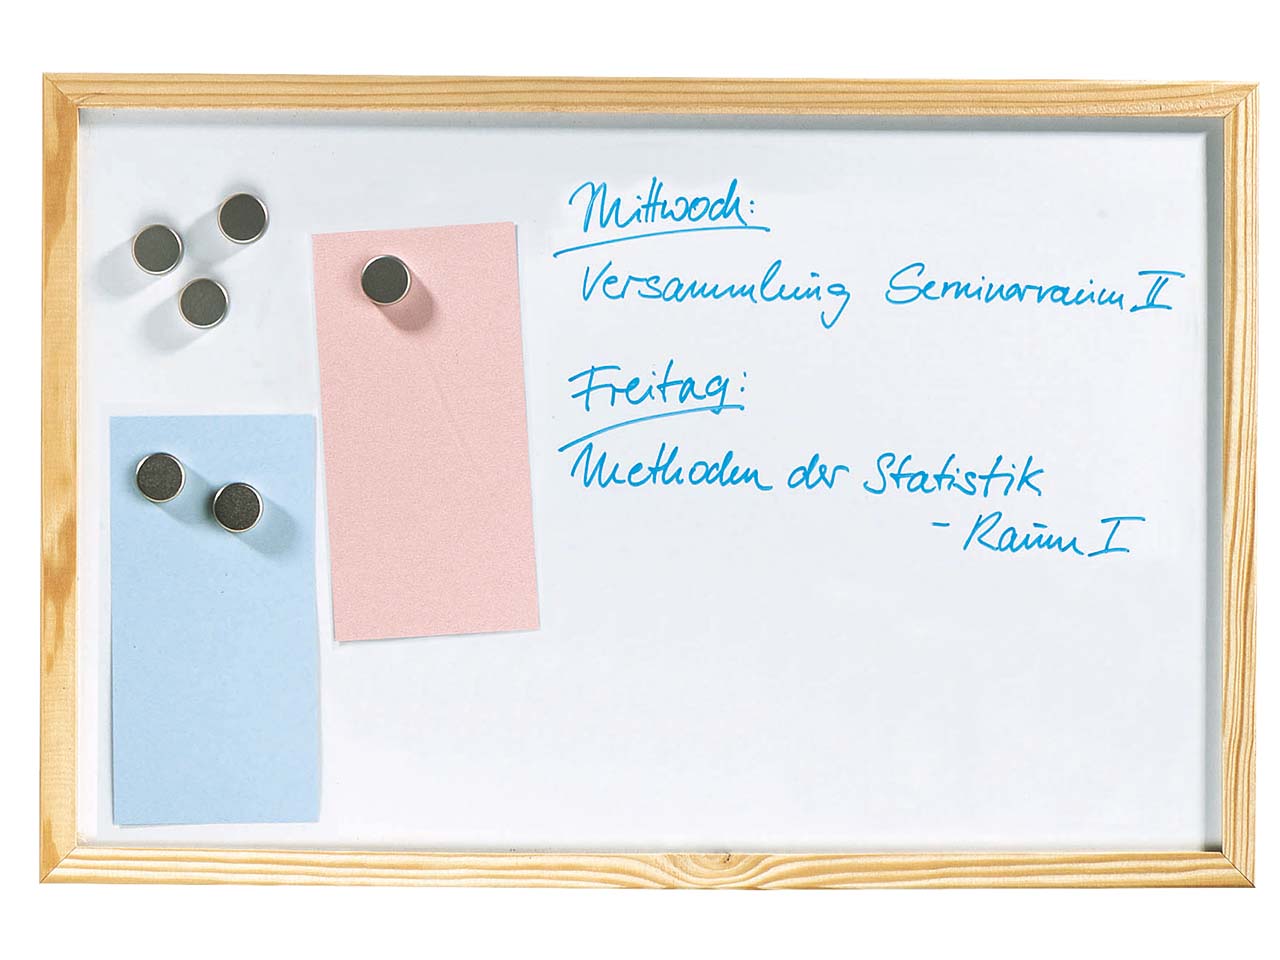 Mittwoch:
Versammlung Seminarraum II
Freitag:
Methoden der Statistik
- Raum I